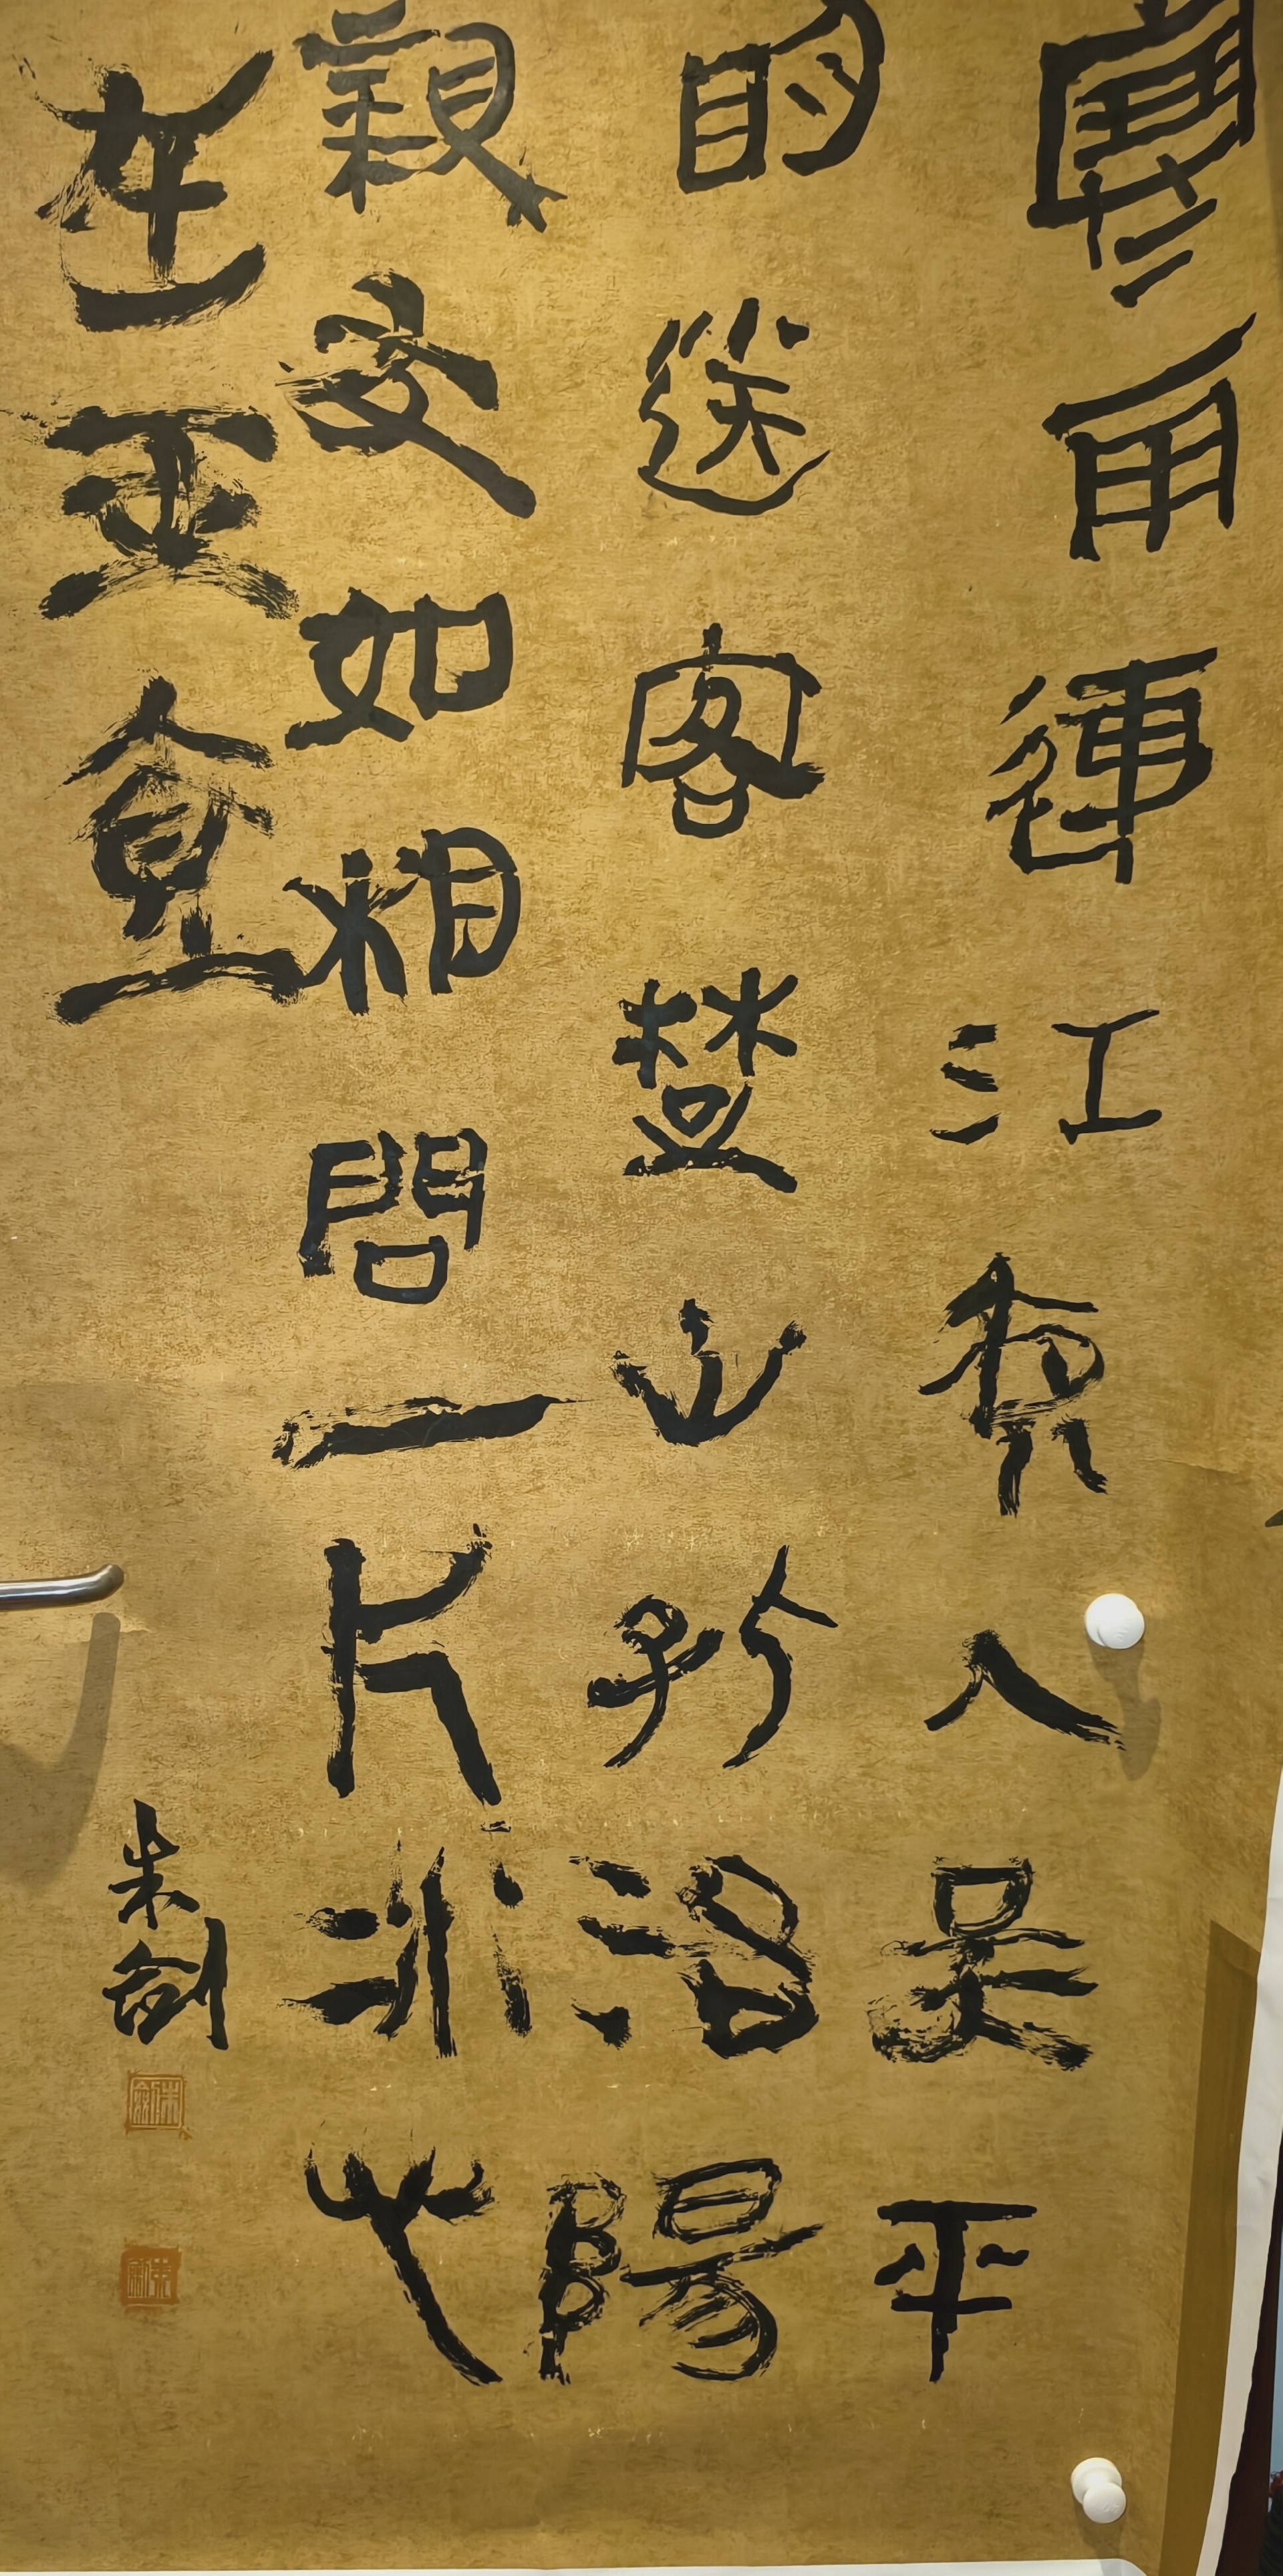 寒雨連江夜入吳平
明送客楚山孤洛陽
親友如相問一片冰心
在玉壺
朱劍